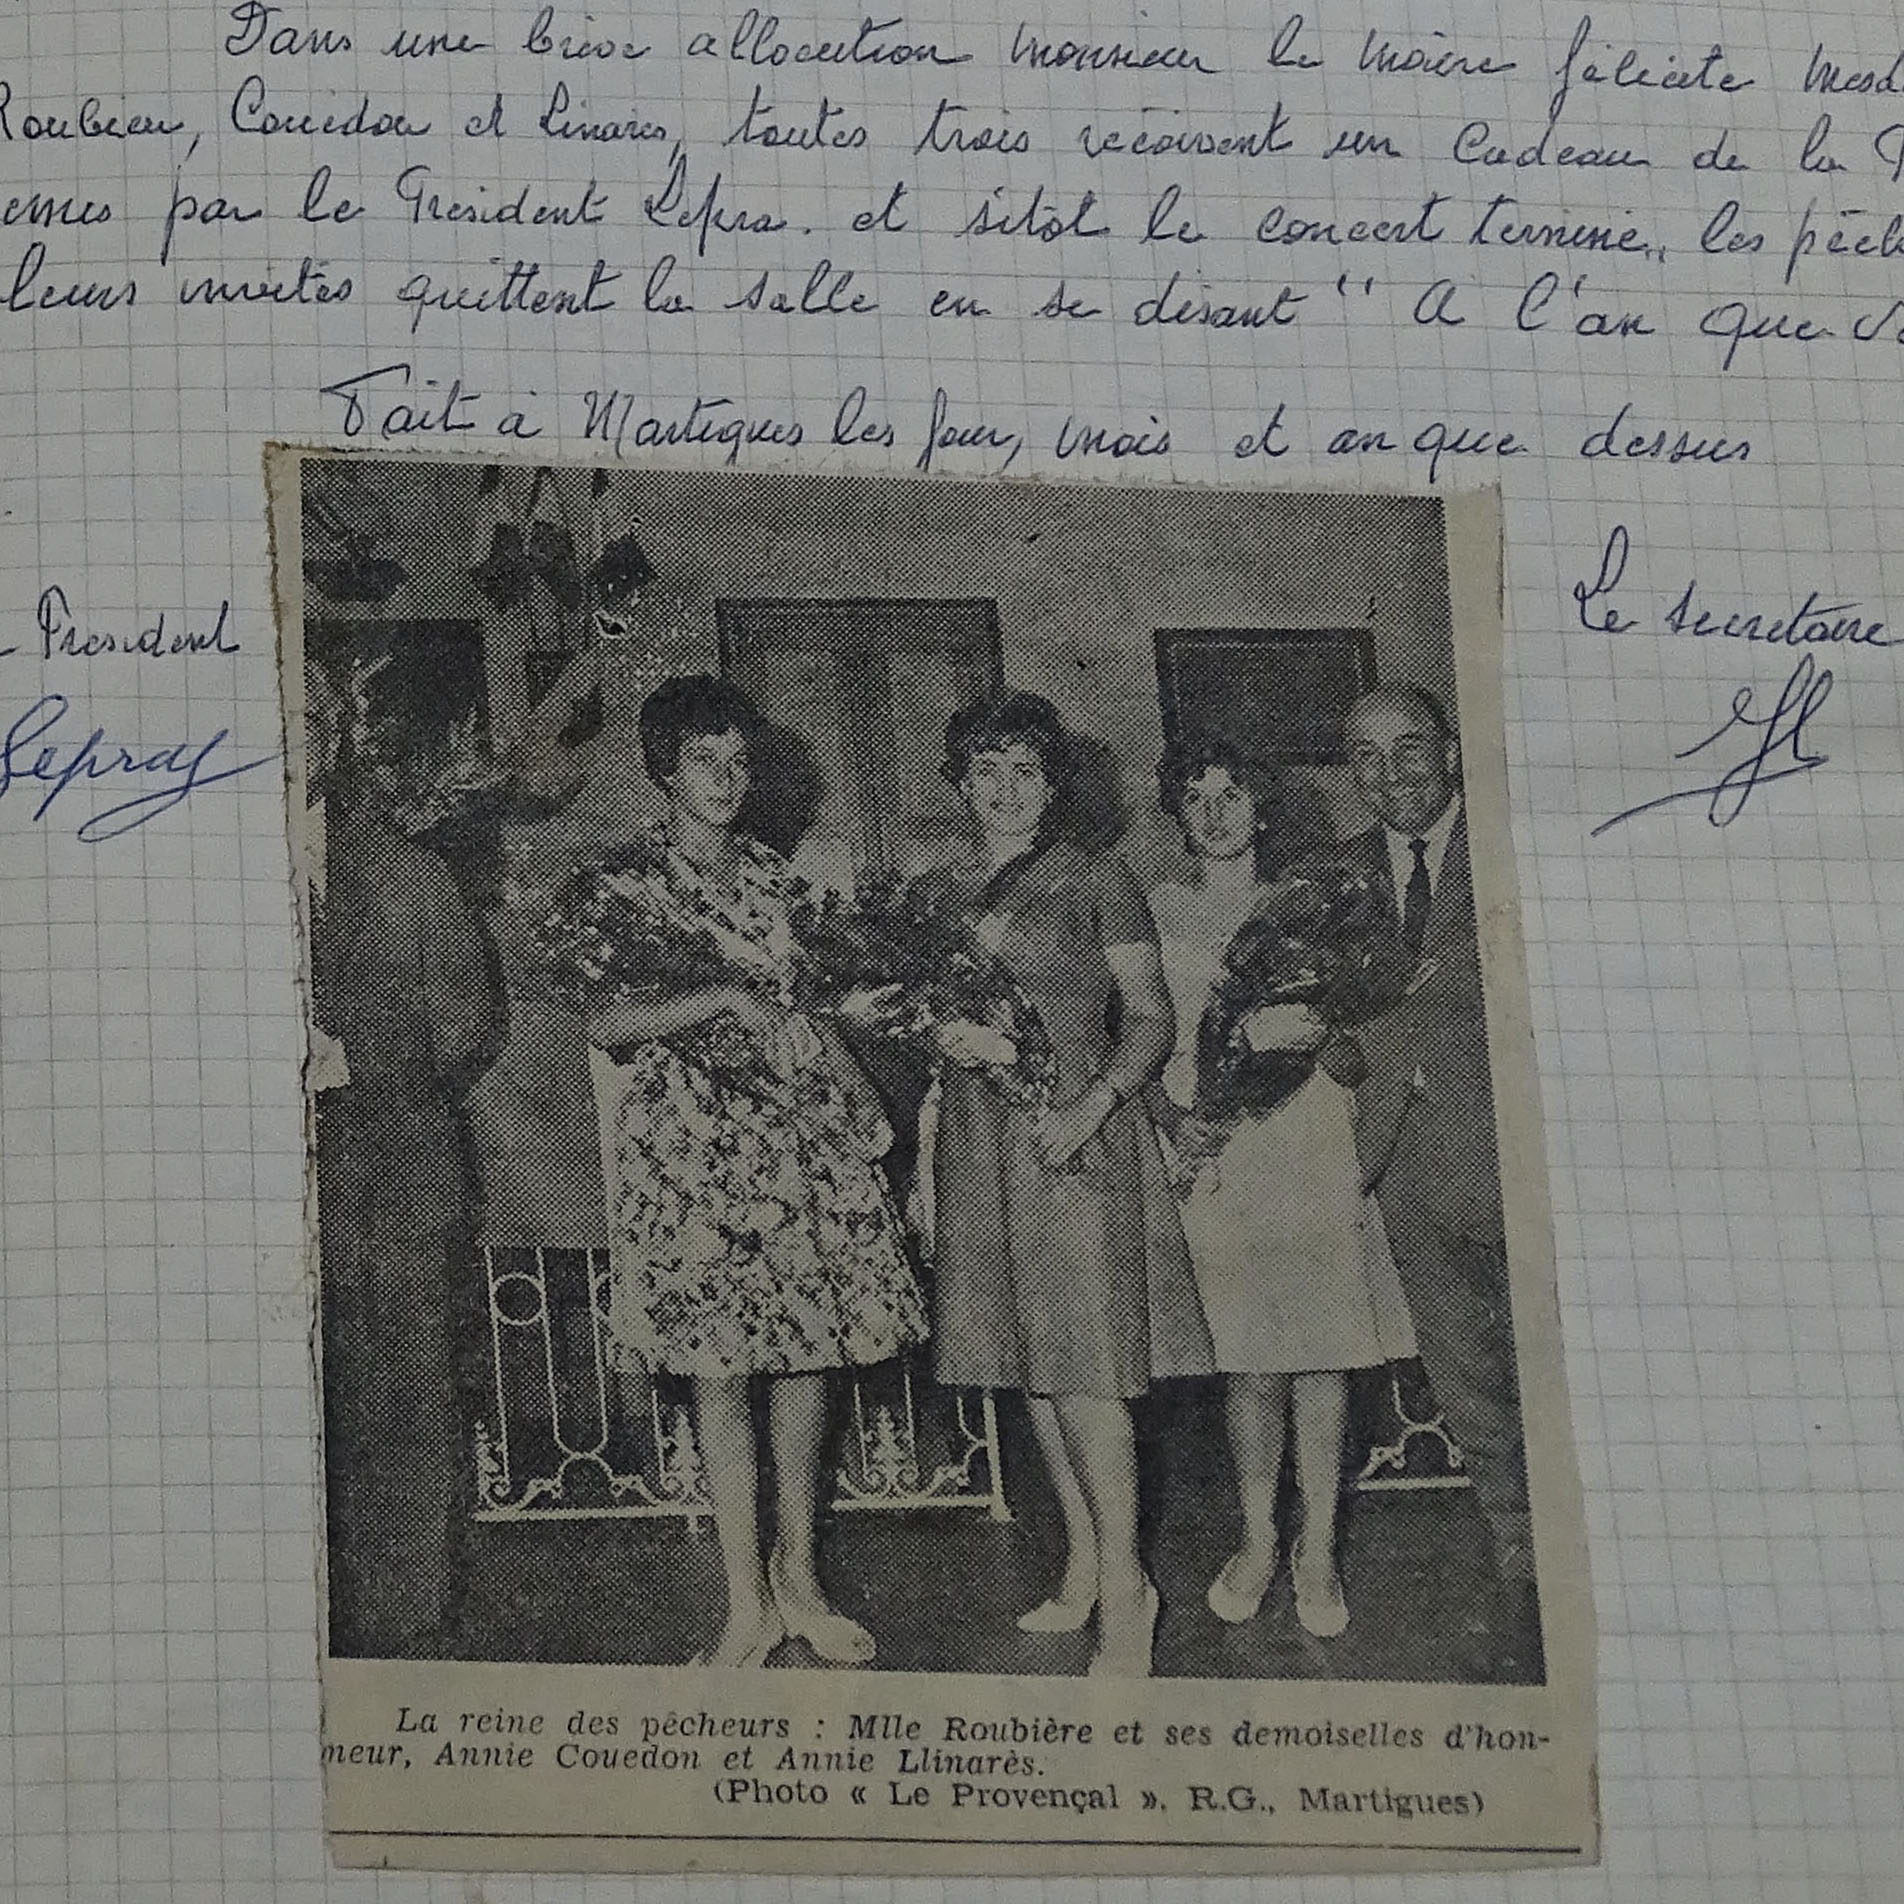 Dans une brève allocution Monsieur le Maire félicite Mesd
Roubieu, Couédou et Linares, toutes trois reçoivent un Cadeau de la P
emis par le Président Lepra. et sitôt le concert terminé, les pêch
leurs invités quittent la salle en se disant " A l'an que
Fait à Martigues les jour, mois et an que dessus
President
Le secretaire
Lepra
La reine des pêcheurs : Mlle Roubière et ses demoiselles d'hon-
neur, Annie Couedon et Annie Llinarès.
(Photo « Le Provençal ». R.G., Martigues)